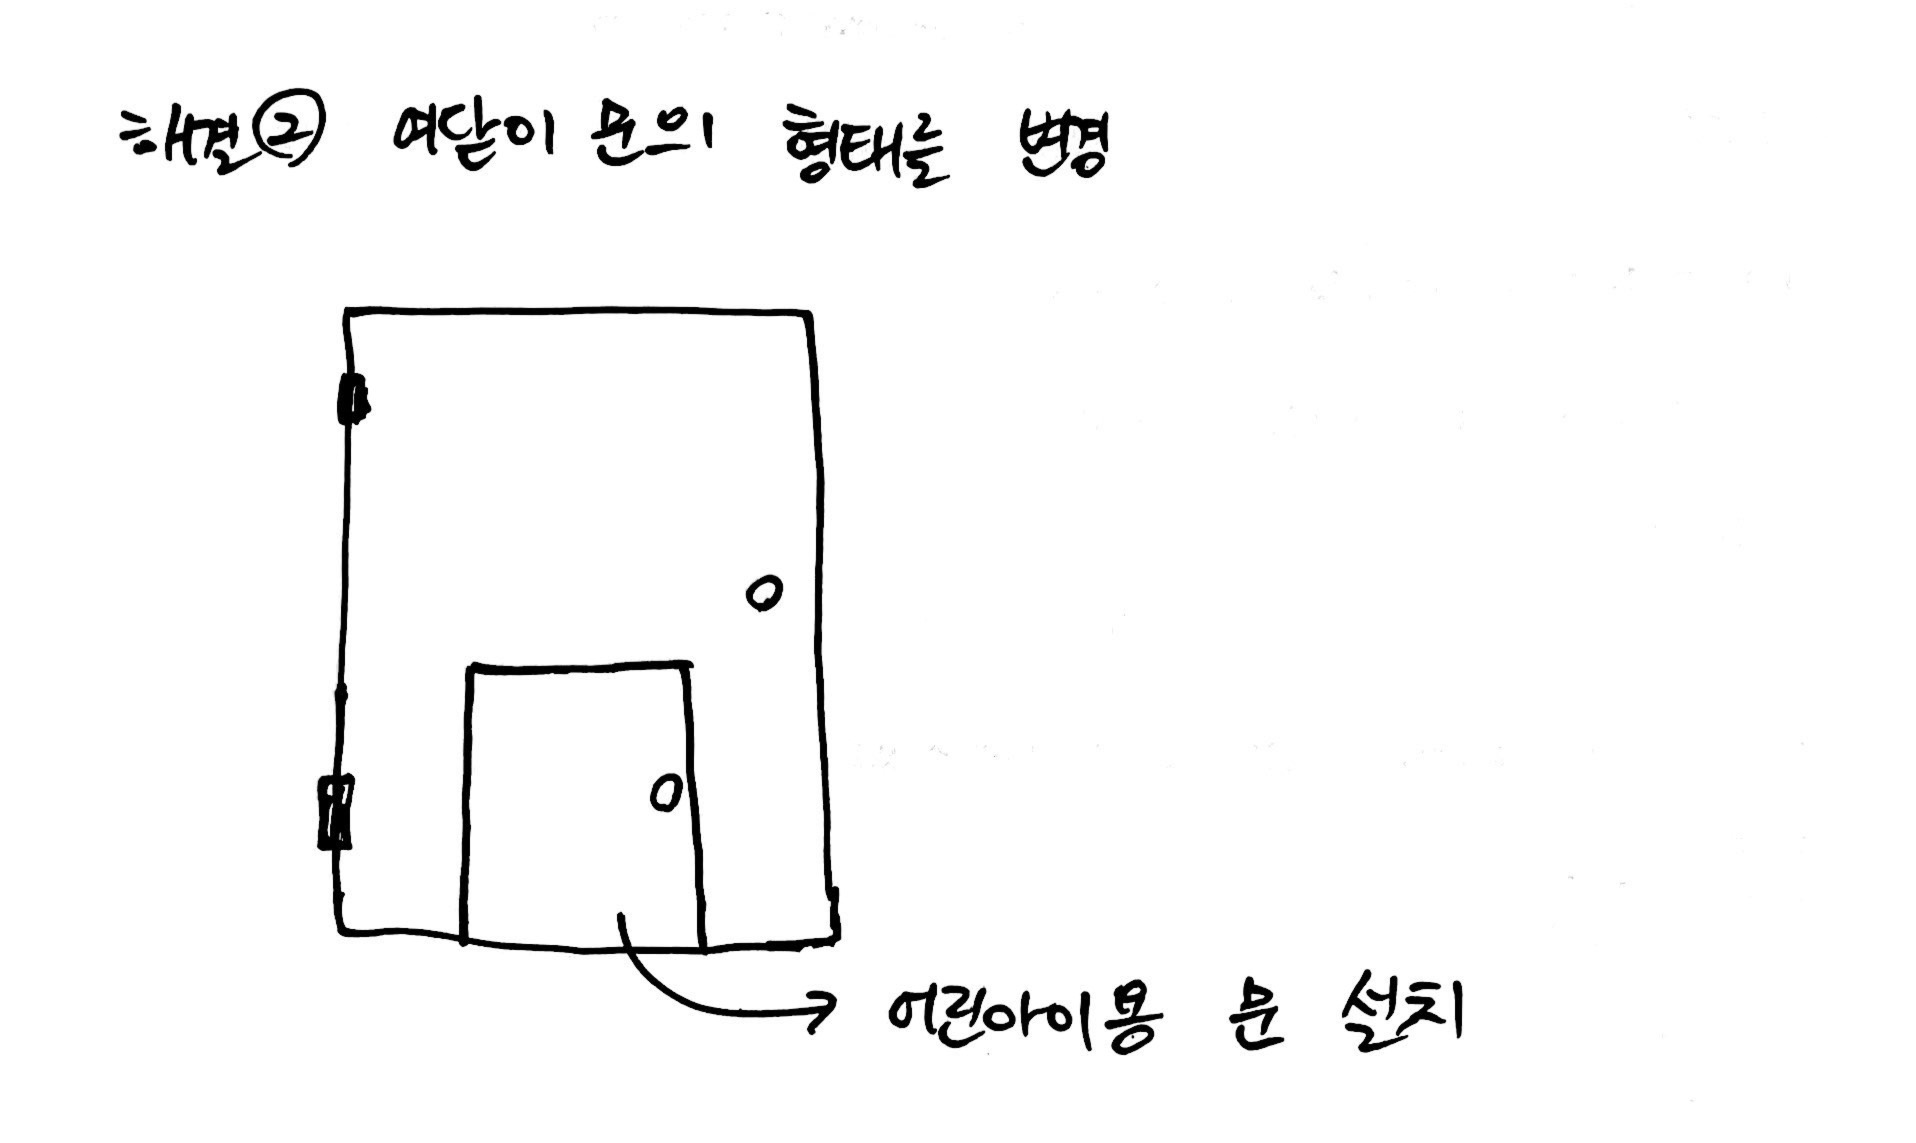 해결② 여닫이 문의 형태를 변경
어린아이용 문 설치